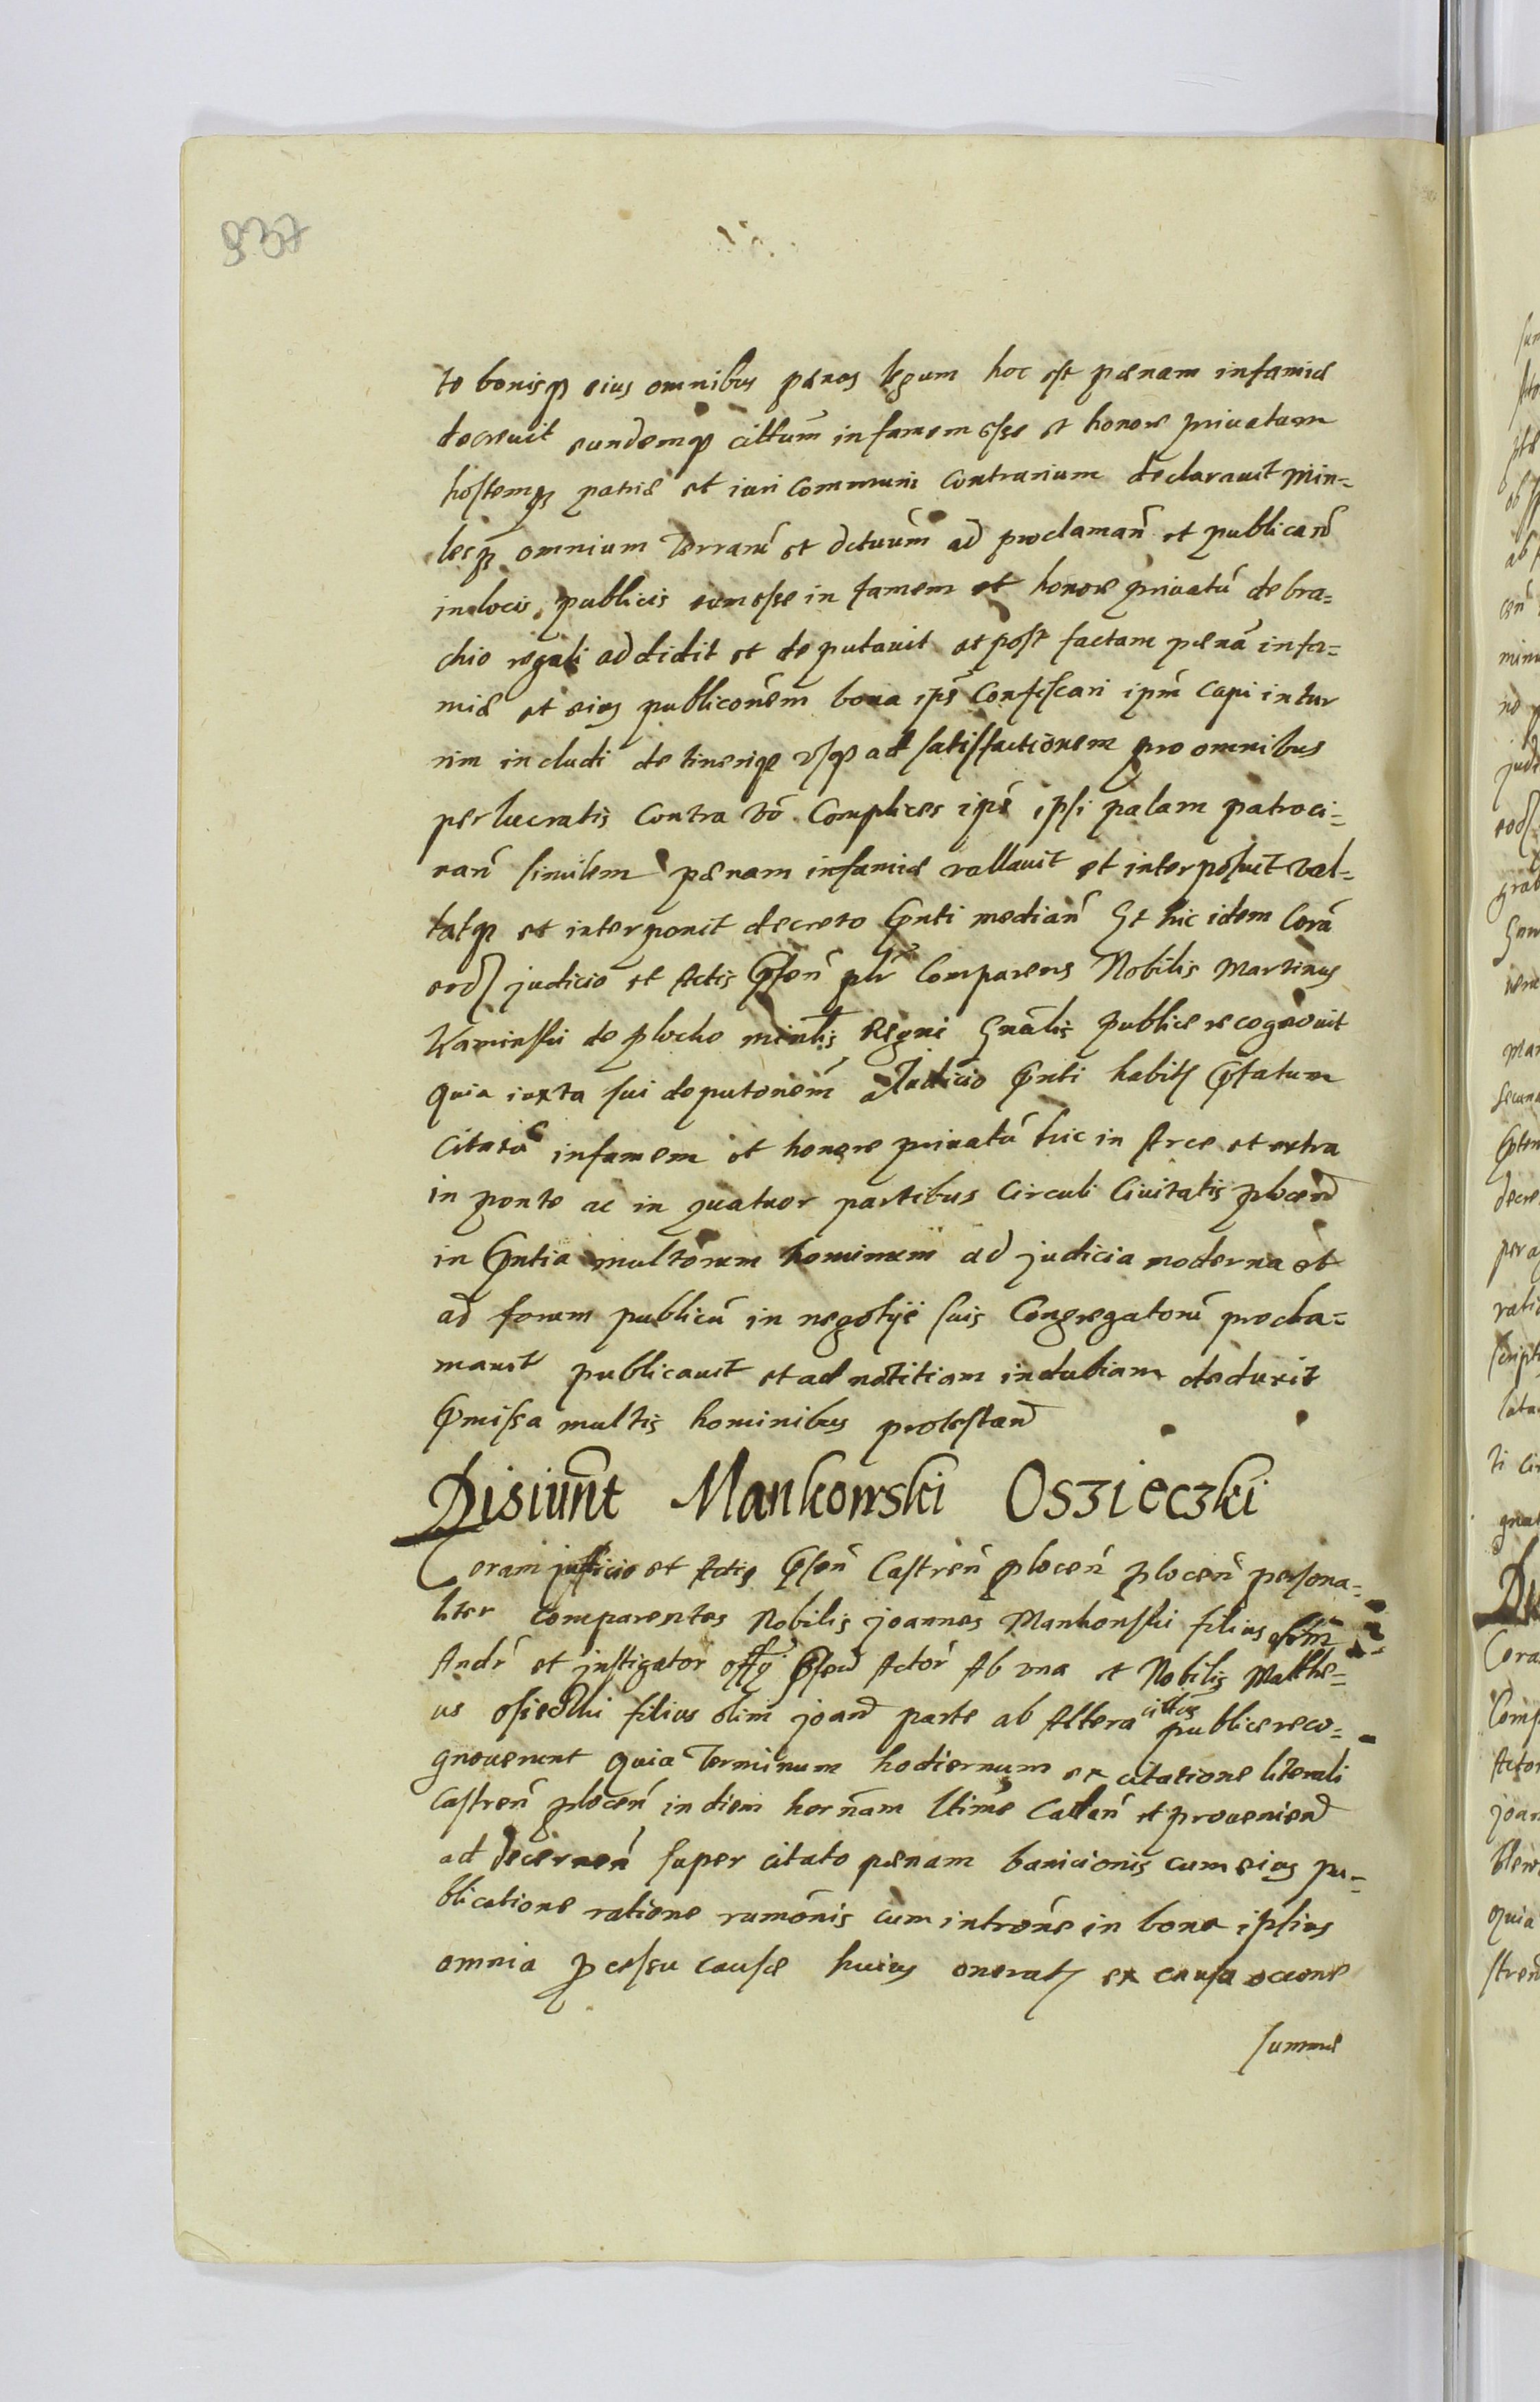 837
to bonisq eius omnibus pænas legum hoc est pænam infamiæ
decreuit eundemq cittum̃ infamem esse et honore priuatum
hostemq patriæ et iuri communi contrarium declarauit Min=
lesq omnium Terrarũ et dctuum̃ ad proclamañ et publicañ
in locis publicis eum esse infamem et honore priuatũ de bra=
chio regali addidit et deputauit et post factam pænã infa=
miæ et eius publicoñem bona ips̃ confiscari ipm̃ capi in tur
rim includi detineriq vsq ad satisfactionem pro omnibus
perlucratis Contra võ Complices ips̃ ipsi palam patroci=
nañ similem pænam infamiæ vallauit et interposuit val=
latq et interponit decreto Pñti mediañ Et hic idem Corã
eod judicio et Actis Pñseñ plr̃ Comparens Nobilis Martinus
Kaminski de plocko minlis̃ Regni Gnalis̃ publice recognouit
quia iuxta sui deputoñem a Judicio Pñti habit Pfatum
Citatũ infamem et honore priuatũ hic in Arce et extra
in ponte ac in quatuor partibus Circuli Ciuitatis ploceñ
in Pñtia multorum hominum ad judicia moderna et
ad forum publicũ in negotijs suis Congregatorũ procla=
mauit publicauit et ad notitiam indubiam deduxit
Pmissa multis hominibus protestañ
Disiuñt Mankowski Oszieczki
Coram judicio et Actis Pñseñ Castreñ ploceñ ploceñ persona=
liter comparentes Nobilis joannes Mankonski filius olim̃
Andr̃ et justigator offÿ Pñseñ Actor̃ Ab vna et Nobilis Matthe=
us osieczki filius olim joañ parte ab Altera cittus publice reco=
gnouerunt quia Terminum hodiernum ex citatione literali
Castreñ ploceñ in diem horñam ltime Cadeñ et proueniend
ad decerneñ super citato pænam banicionis cum eius pu=
blicatione ratione rumoñis cum introñe in bona ipsius
omnia Pcessu causæ huius onerat ex causa ocione
summæ